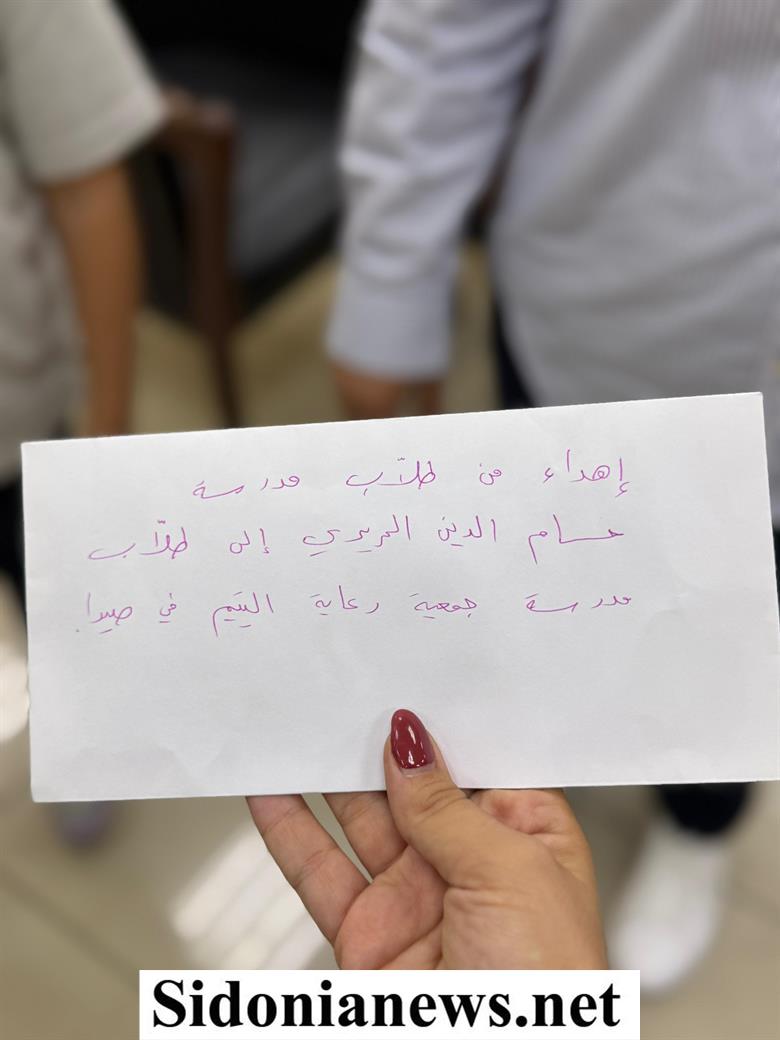 إهداء من طلّاب مدرسة
حسام الدين الحريري إلى طلّاب
مدرسة جمعية رعاية اليتيم في صيدا.
Sidonianews.net